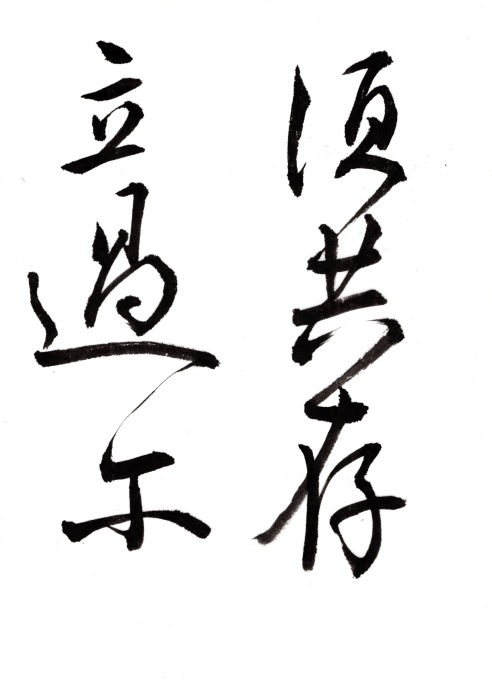 須共存
立過尓